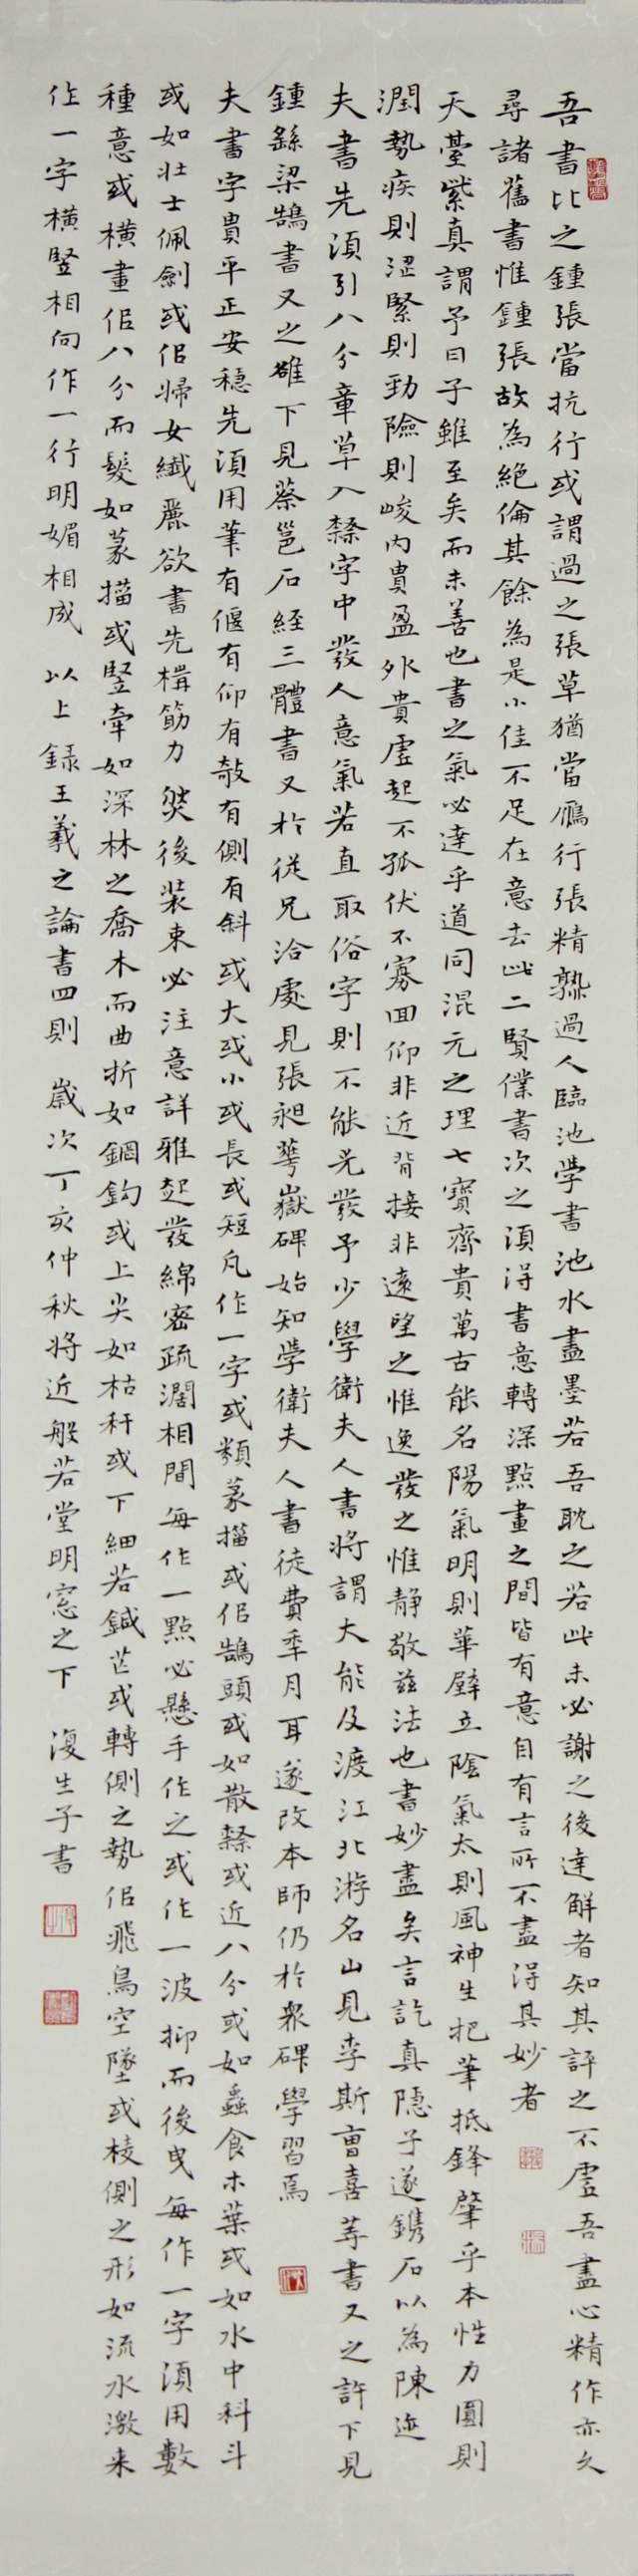 吾書比之鍾張當抗行或謂過之張草猶當雁行張精熟過人臨池學書池水盡墨若吾耽之若此未必謝之後達解者知其評之不虛吾盡心精作亦久
尋諸舊書惟鍾張故為絕倫其餘為是小佳不足在意去此二賢僕書次之須得書意轉深點畫之間皆有意自有言所不盡得其妙者
天臺紫真謂予曰子雖至矣而未善也書之氣必達乎道同混元之理七寶齊貴萬古能名陽氣明則華壁立陰氣太則風神生把筆抵鋒肇乎本性力圓則
潤勢疾則澀緊則勁險則峻內貴盈外貴虛起不孤伏不寡回仰非近背接非遠望之惟逸發之惟靜敬茲法也書妙盡矣言訖真隱子遂鐫石以為陳迹
夫書先須引八分章草入隸字中發人意氣若直取俗字則不能先發予少學衛夫人書將謂大能及渡江北游名山見李斯曹喜等書又之許下見
鍾繇梁鵠書又之雒下見蔡邕石經三體書又於從兄洽處見張昶華嶽碑始知學衛夫人書徒費年月耳遂改本師仍於眾碑學習焉
夫書字貴平正安穩先須用筆有偃有仰有攲有側有斜或大或小或長或短凡作一字或類篆籀或似鵠頭或如散隸或近八分或如蟲食木葉或如水中科斗
或如壯士佩劍或似婦女纖麗欲書先構筋力然後裝束必注意詳雅起發綿密疏濶相間每作一點必懸手作之或作一波抑而後曳每作一字須用數
種意或橫畫似八分而發如篆籀或豎牽如深林之喬木而曲折如鋼鈎或上尖如枯秆或下細若鍼芒或轉側之勢似飛鳥空墜或棱側之形如流水激来
作一字橫豎相向作一行明媚相成 以上録王羲之論書四則 歲次丁亥仲秋將近般若堂明窓之下 復生子書